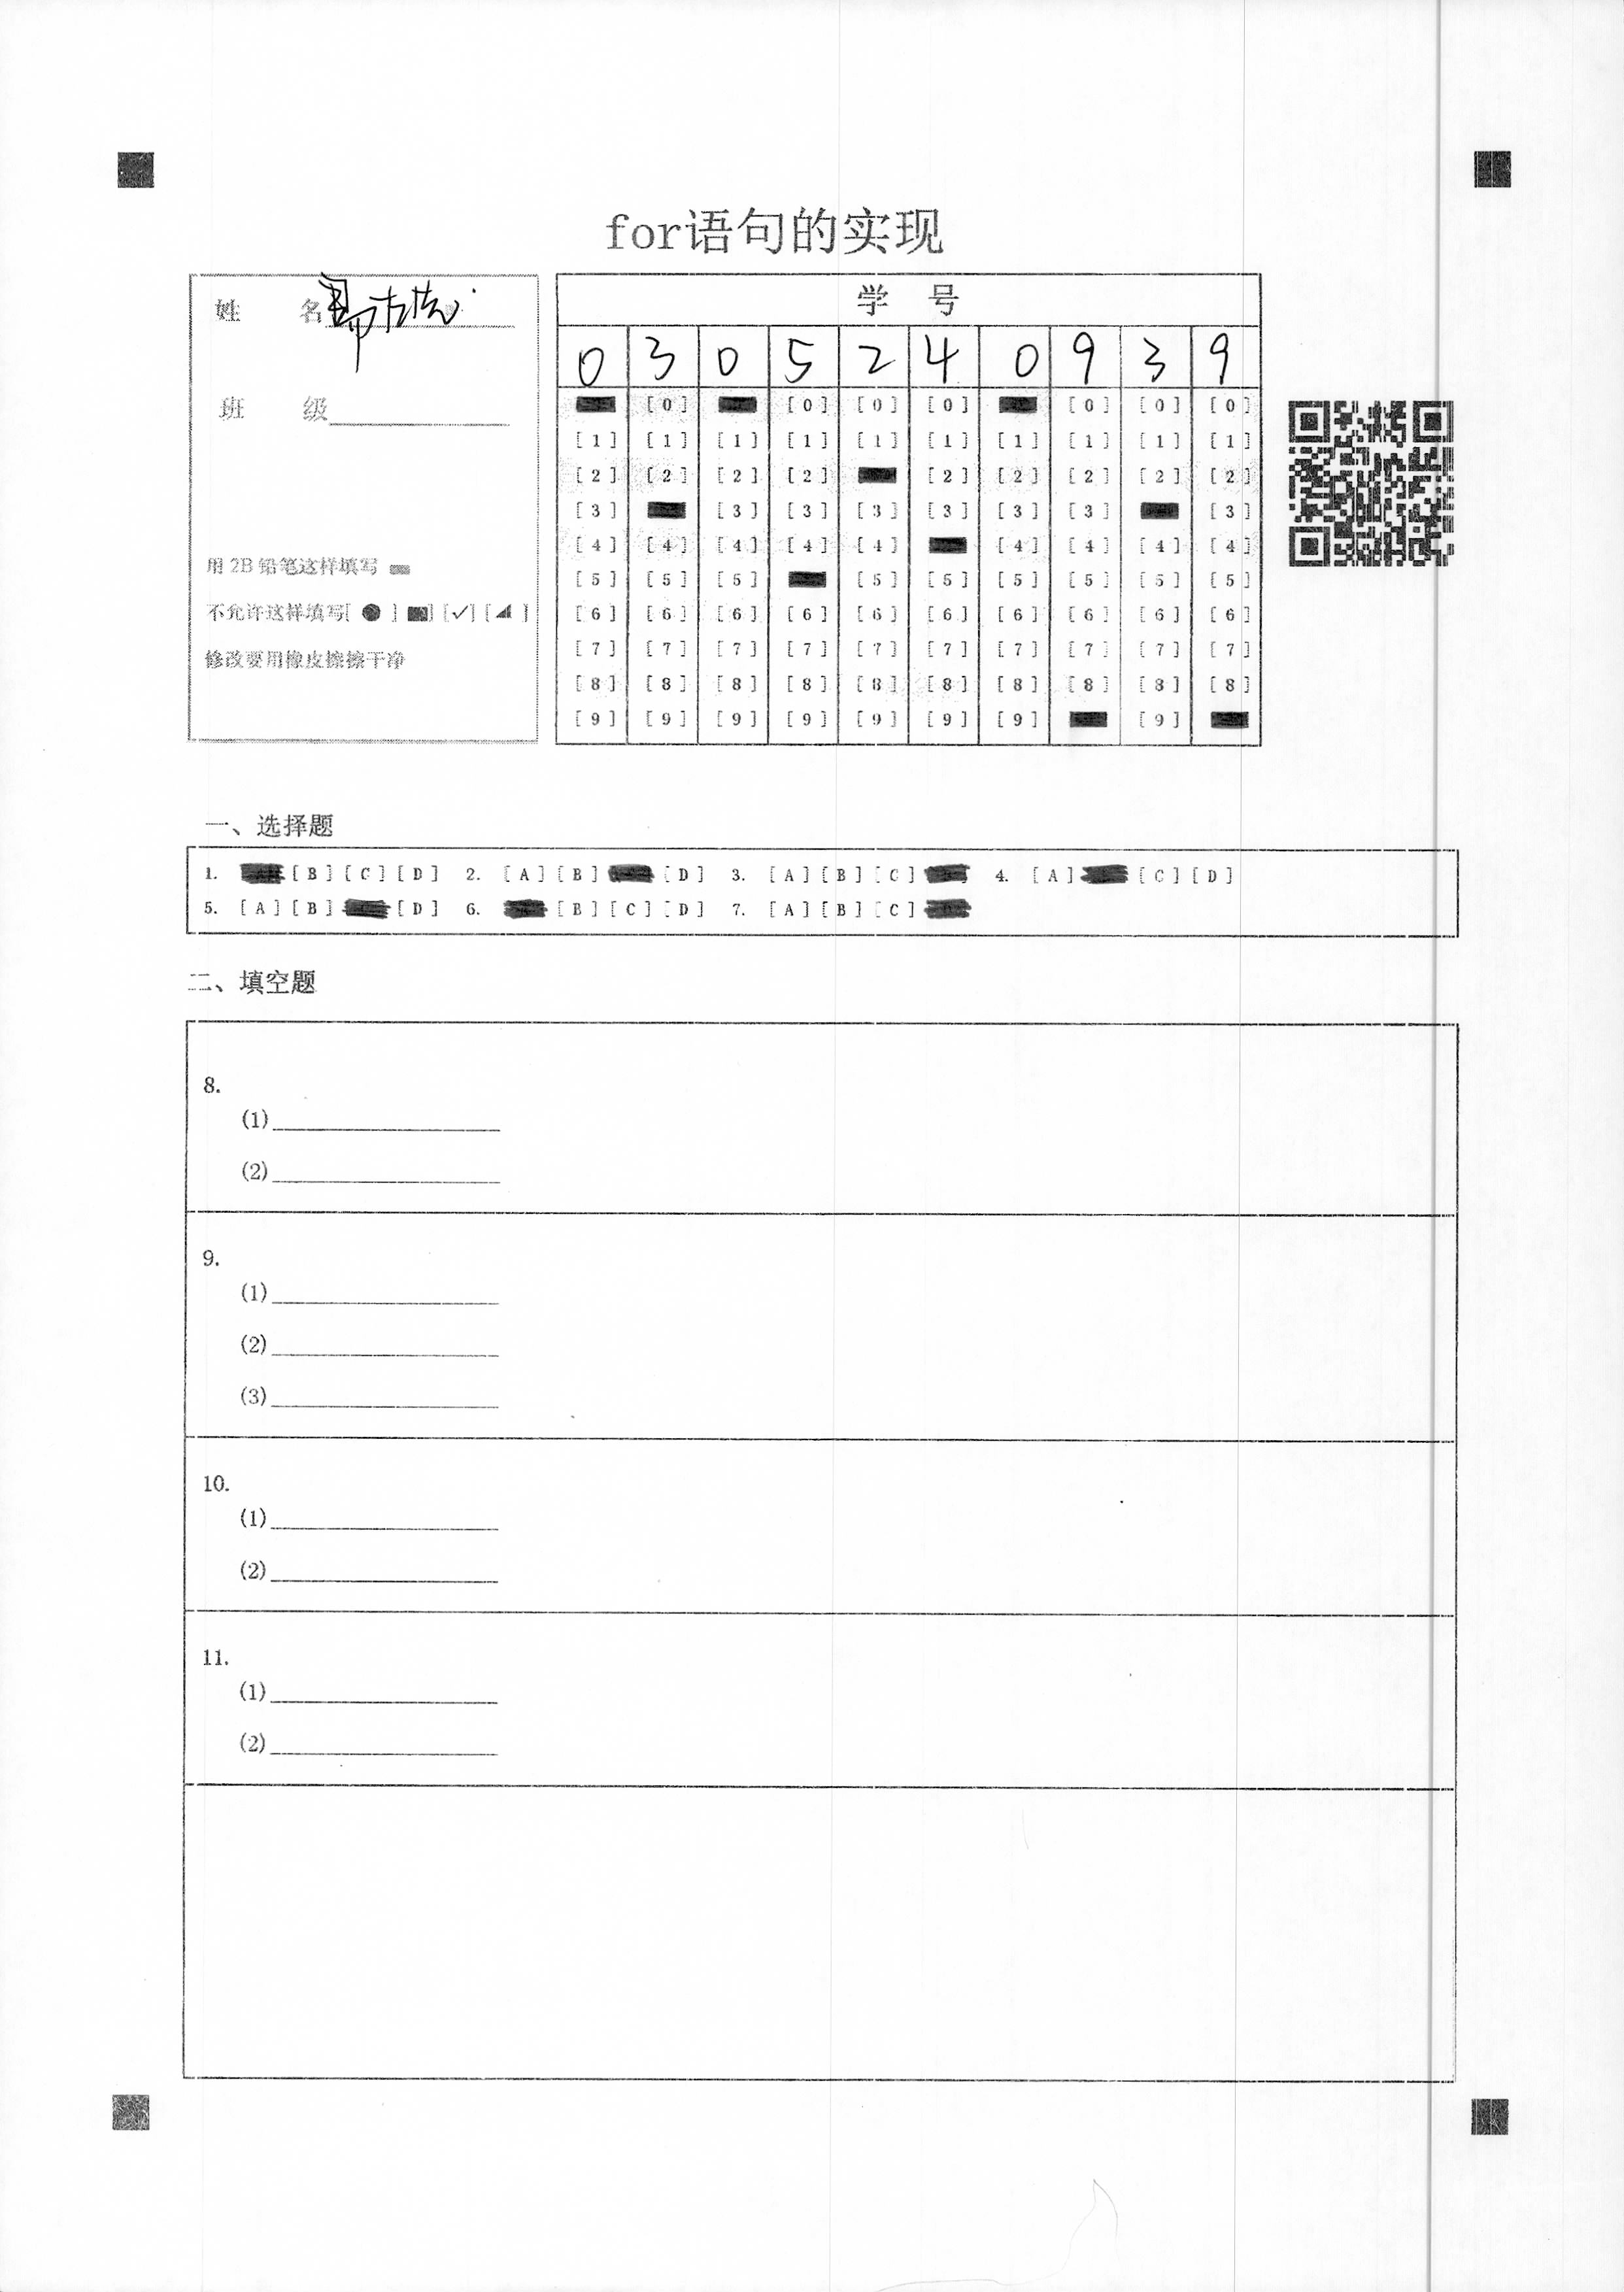 for语句的实现
姓 名
班 级
用 2B 铅笔这样填写
不允许这样填写[ ● ] [■] [✓] [◢ ]
修改要用橡皮擦擦干净
学 号
0 3 0 5 2 4 0 9 3 9
[0] [0] [0] [0] [0] [0] [0]
[1] [1] [1] [1] [1] [1] [1] [1] [1] [1]
[2] [2] [2] [2] [2] [2] [2] [2] [2]
[3] [3] [3] [3] [3] [3] [3] [3]
[4] [4] [4] [4] [4] [4] [4] [4] [4]
[5] [5] [5] [5] [5] [5] [5] [5] [5]
[6] [6] [6] [6] [6] [6] [6] [6] [6] [6]
[7] [7] [7] [7] [7] [7] [7] [7] [7] [7]
[8] [8] [8] [8] [8] [8] [8] [8] [8] [8]
[9] [9] [9] [9] [9] [9] [9] [9]
一、选择题
1. [B] [C] [D] 2. [A] [B] [D] 3. [A] [B] [C] 4. [A] [C] [D]
5. [A] [B] [D] 6. [B] [C] [D] 7. [A] [B] [C]
二、填空题
8.
(1)
(2)
9.
(1)
(2)
(3)
10.
(1)
(2)
11.
(1)
(2)